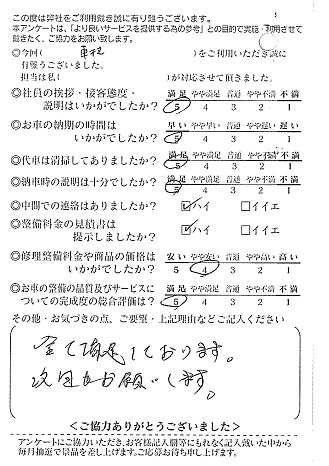 この度は弊社をご利用戴き誠に有り難うございます。
本アンケートは、「より良いサービスを提供する為の参考」との目的で実施・利用させて
戴きたく、ご協力をお願い致します。
◎今回(車検)をご利用いただき誠に
有難うございました。
担当は私()が対応させて頂きました。
◎社員の挨拶・接客態度・
説明はいかがでしたか? 満足 やや満足 普通 やや不満 不満
5 4 3 2 1
◎お車の納期の時間は
いかがでしたか? 早い やや早い 普通 やや遅い 遅い
5 4 3 2 1
◎代車は清掃してありましたか? 満足 やや満足 普通 やや不満 不満
5 4 3 2 1
◎納車時の説明は十分でしたか? 満足 やや満足 普通 やや不満 不満
5 4 3 2 1
◎中間での連絡はありましたか? ☑ハイ □イイエ
◎整備料金の見積書は
提示しましたか? ☑ハイ □イイエ
◎修理整備料金や商品の価格は
いかがでしたか? 安い やや安い 普通 やや高い 高い
5 4 3 2 1
◎お車の整備の品質及びサービスに
ついての完成度の総合評価は? 満足 やや満足 普通 やや不満 不満
5 4 3 2 1
その他・お気づきの点、ご要望・上記理由などご記入ください
全て満足しております。
次回もお願いします。
<ご協力ありがとうございました>
アンケートにご協力いただき、お客様記入欄等にもれなく記入戴いた中から
毎月抽選で景品を差し上げます。ご応募お待ち申し上げます。